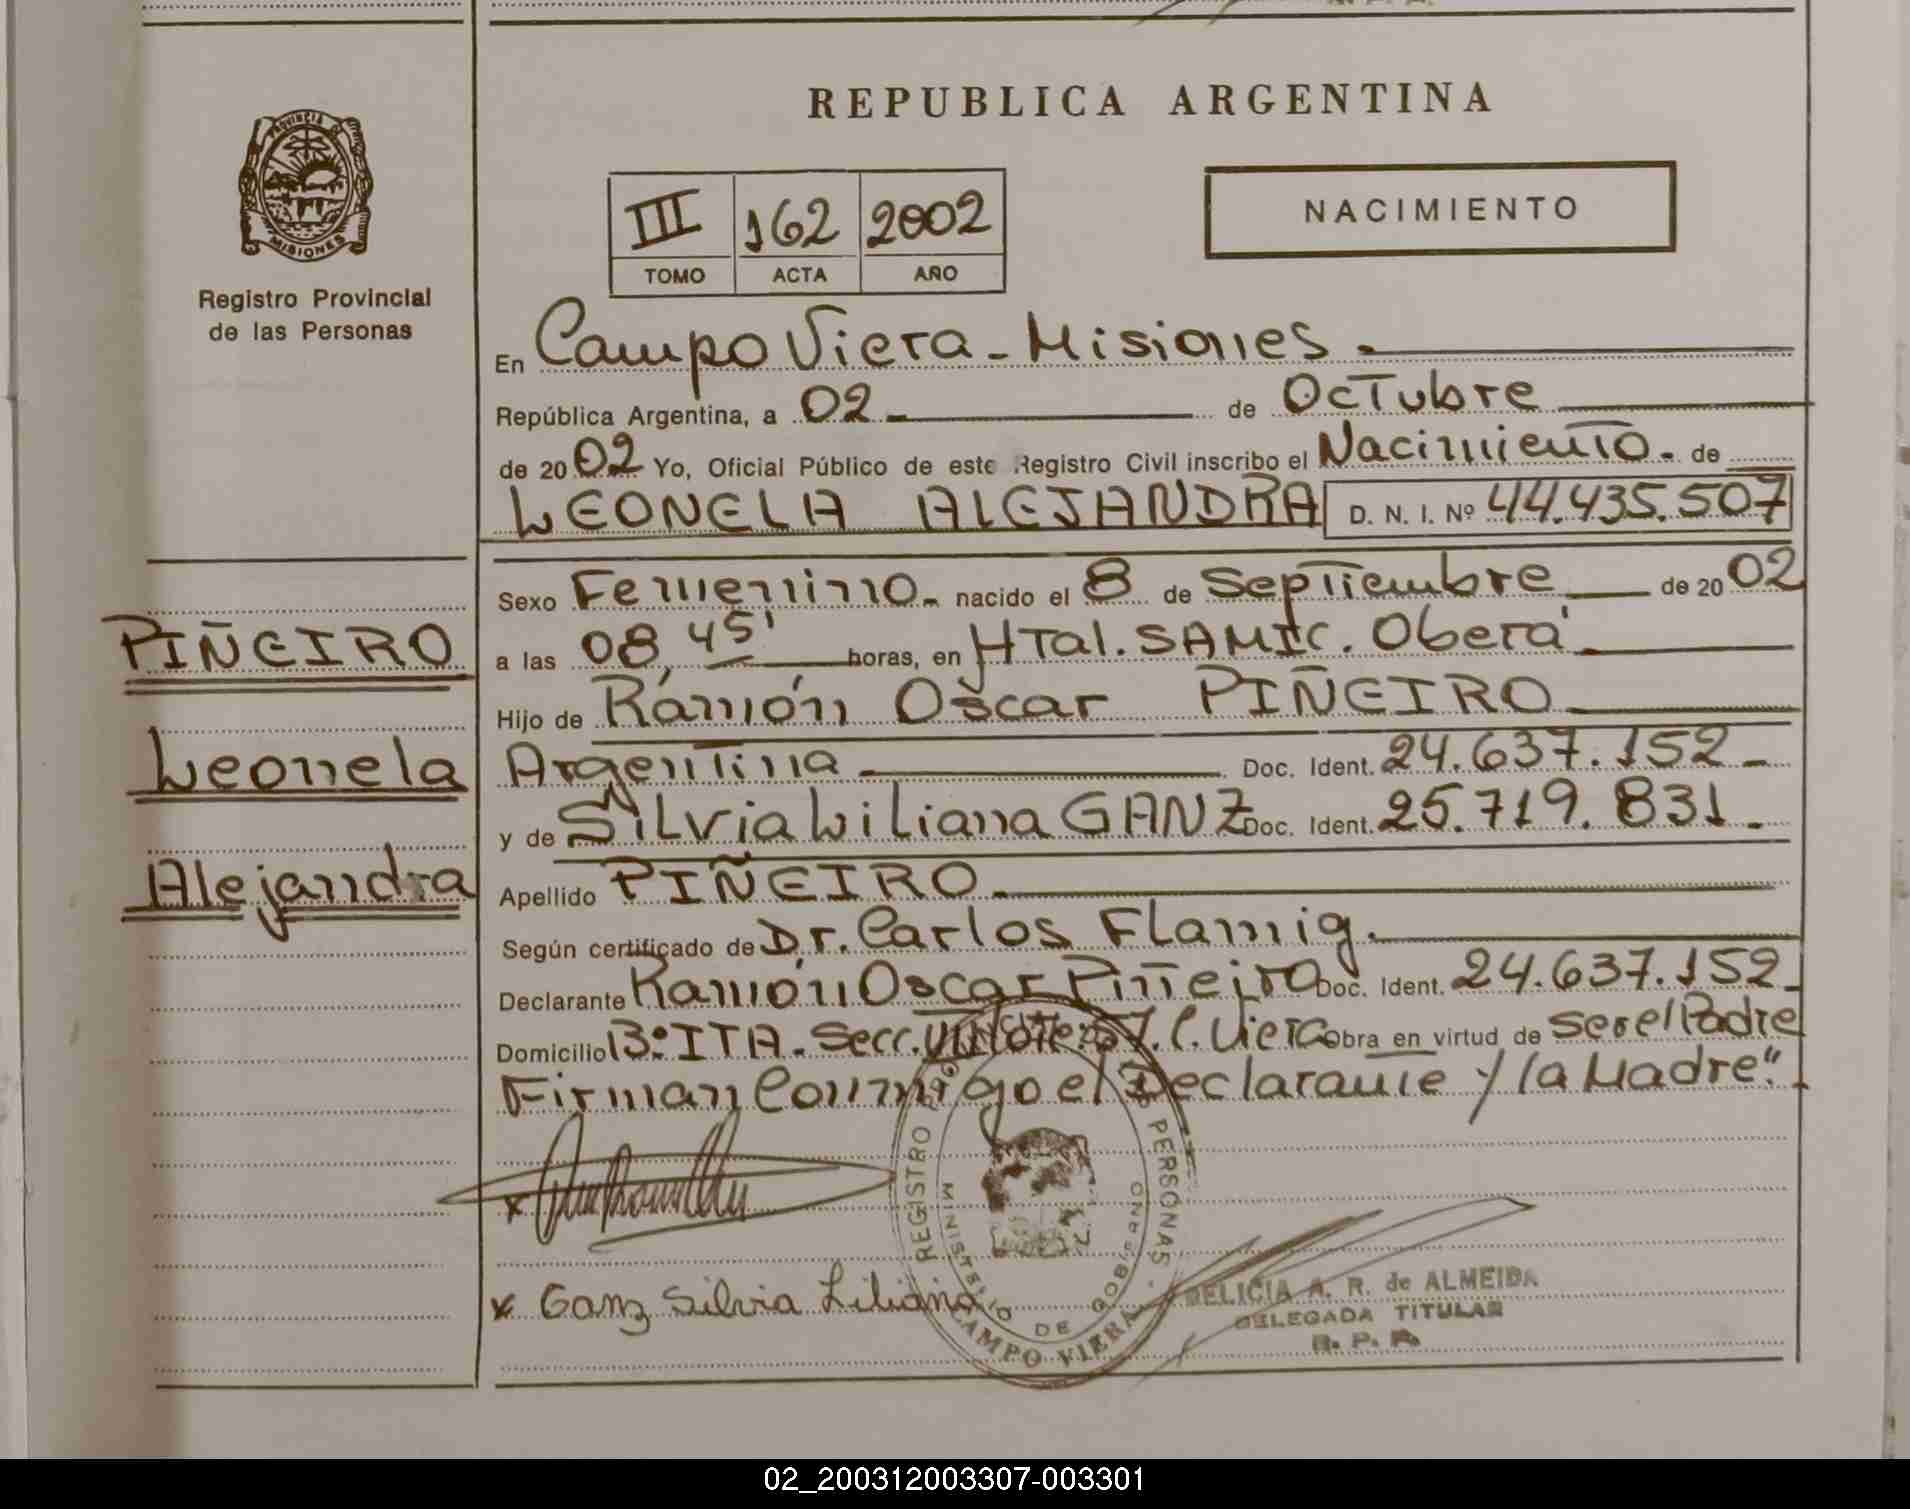 PROVINCIA DE
MISIONES
Registro Provincial
de las Personas
PIÑEIRO
Leonela
Alejandra
REPUBLICA ARGENTINA
III 162 2002
TOMO ACTA AÑO
NACIMIENTO
En Campo Viera - Misiones.
República Argentina, a 02 de Octubre
de 2002 Yo, Oficial Público de este Registro Civil inscribo el Nacimiento. de
LEONELA ALEJANDRA D. N. I. Nº 44.435.507
Sexo Femenino. nacido el 8 de Septiembre de 2002
a las 08,45' horas, en HTal. SAMIC. Oberá
Hijo de Ramón Oscar PIÑEIRO
Argentina Doc. Ident. 24.637.152
y de Silvia Liliana GANZ Doc. Ident. 25.719.831
Apellido PIÑEIRO
Según certificado de Dr. Carlos Flamig.
Declarante Ramón Oscar Piñeiro Doc. Ident. 24.637.152
Domicilio Bº ITA. Secc. VIII Lote: 57. C. Viera Obra en virtud de ser el Padre
Firman Conmigo el Declarante y la Madre".
x
x Ganz Silvia Liliana
REGISTRO PERSONAS
MINISTERIO DE GOBIERNO
CAMPO VIERA
DELICIA A. R. de ALMEIDA
DELEGADA TITULAR
R. P. P.
02_200312003307-003301